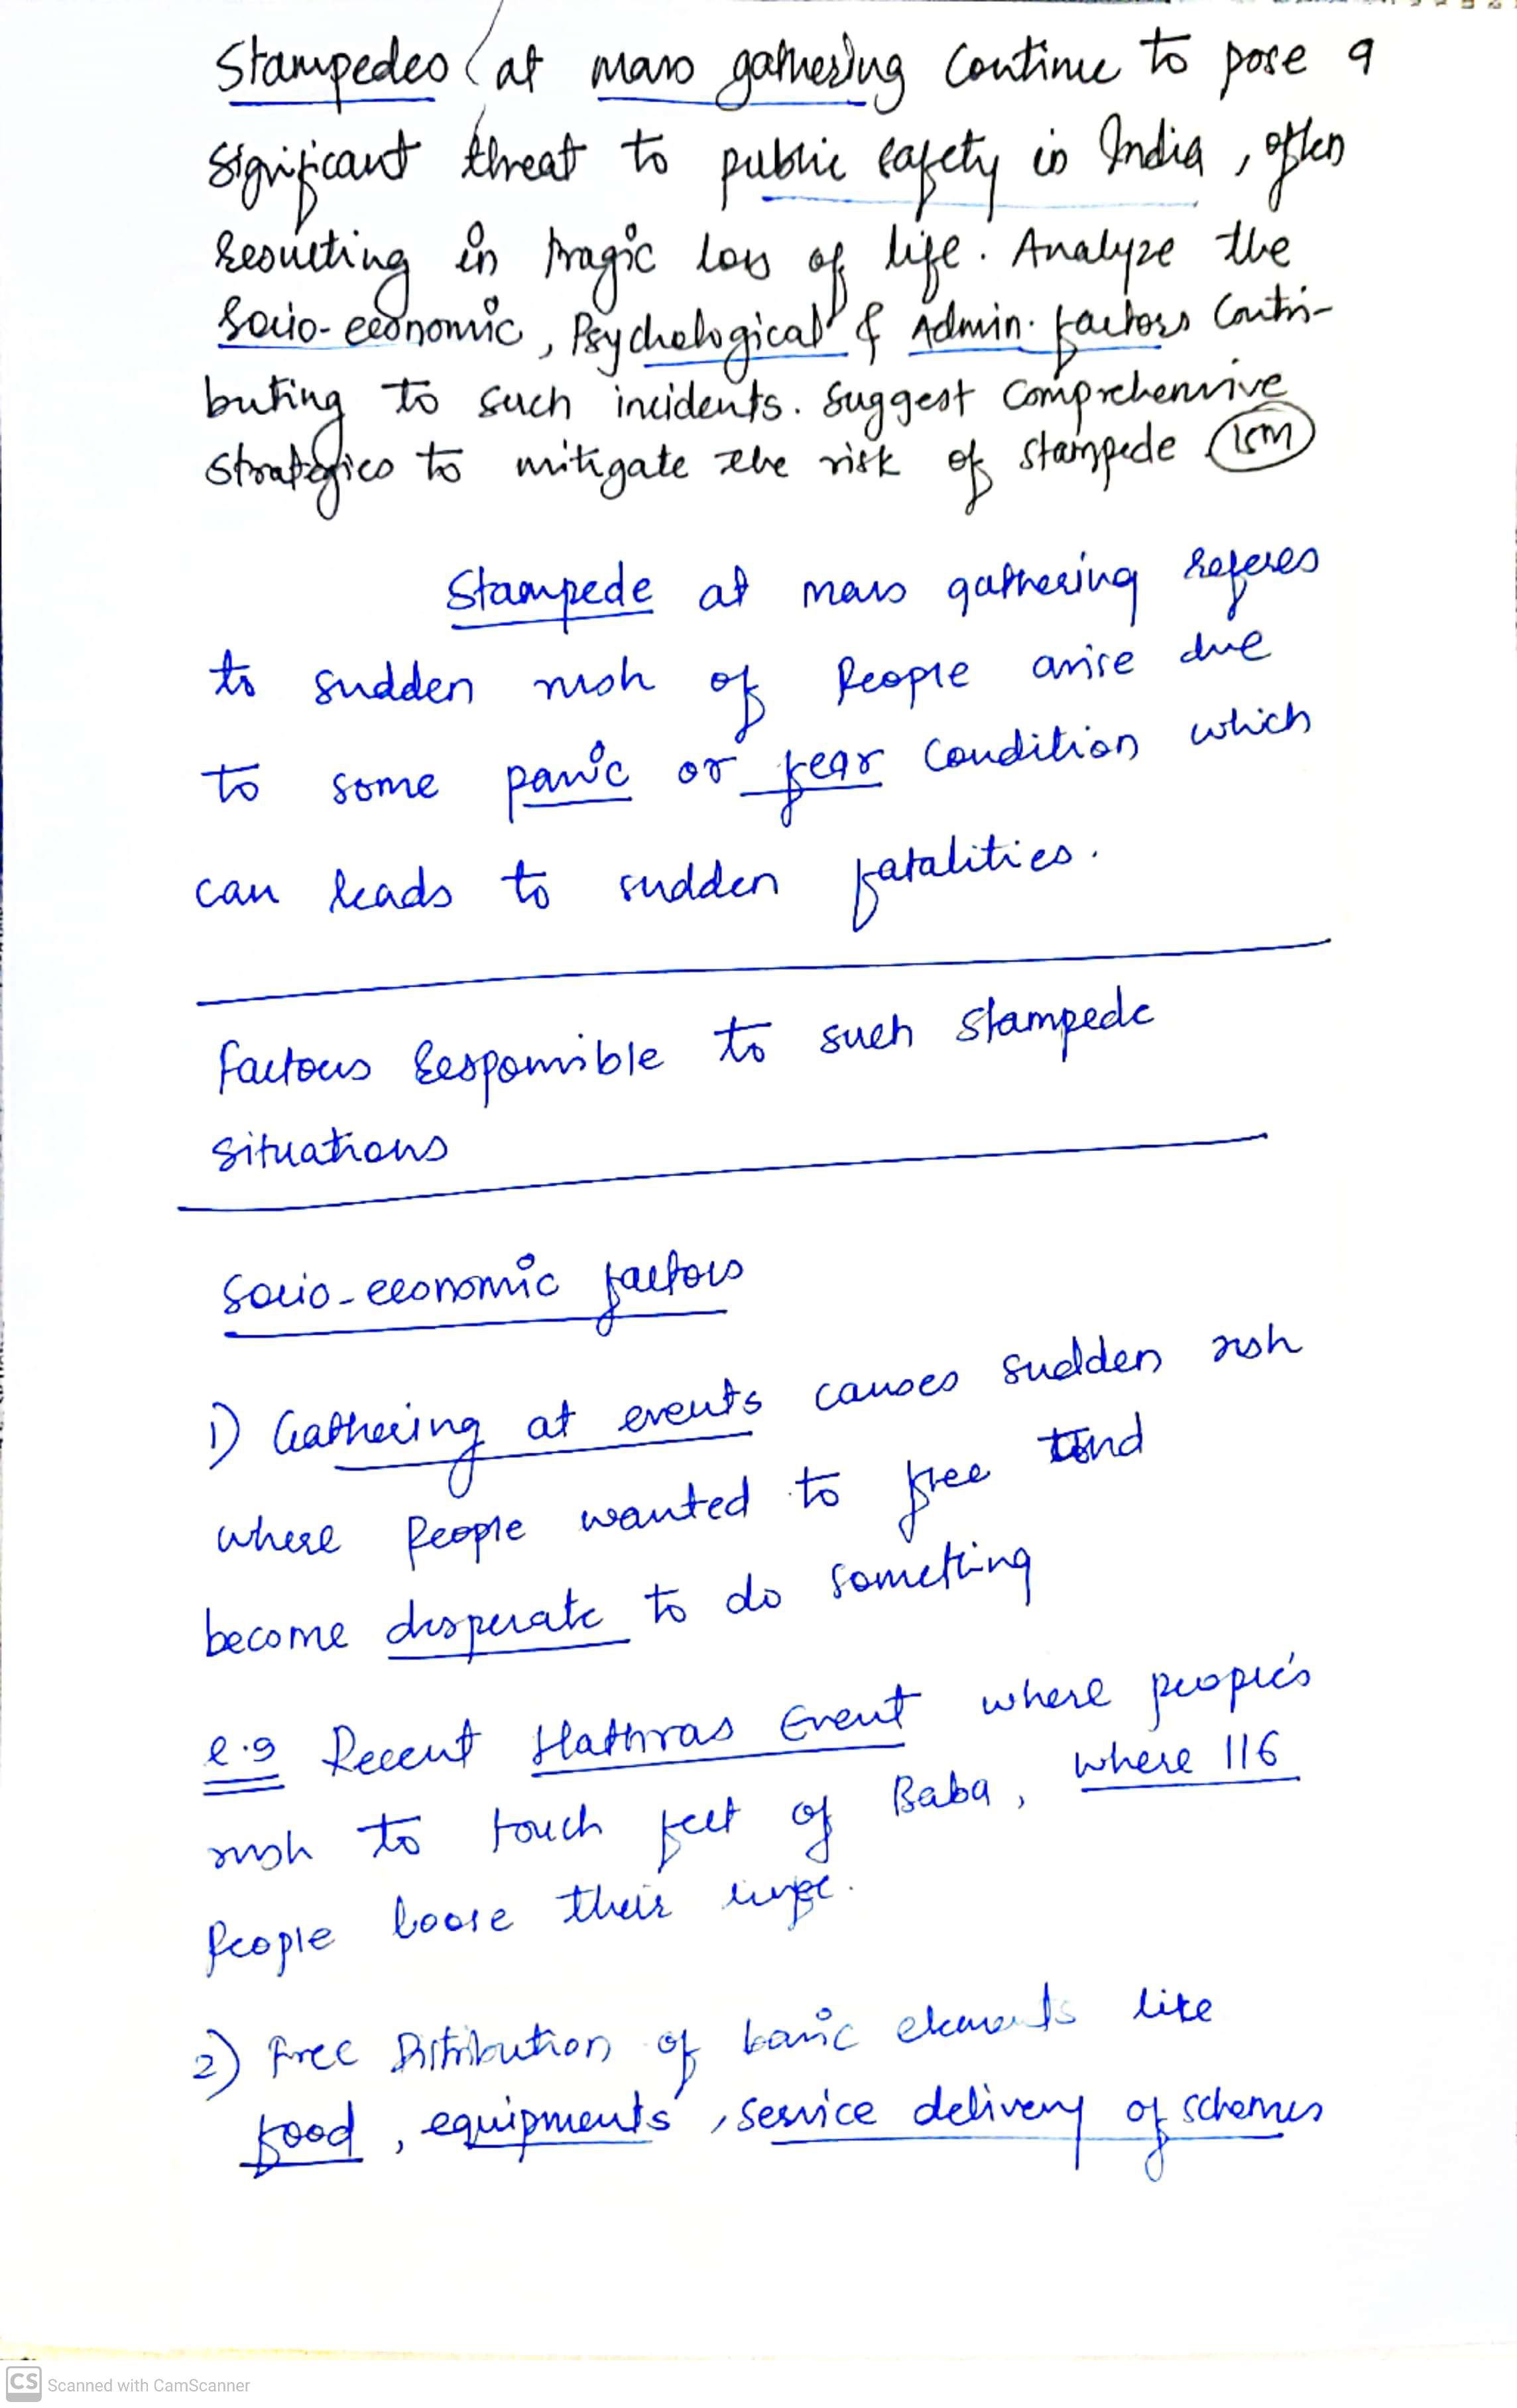 Stampedes at mass gathering continue to pose a
significant threat to public safety in India, often
resulting in tragic loss of life. Analyze the
Socio-economic, Psychological & Admin. factors contri-
buting to such incidents. Suggest comprehensive
strategies to mitigate the risk of stampede 15M
Stampede at mass gathering referes
to sudden rush of People arise due
to some panic or fear condition which
can leads to sudden fatalities.
Factous Responsible to such stampede
situations
Socio-economic factors
1) Gathering at events causes sudden rush
where People wanted to free
become desperate to do something
e.g Recent Hathras Event where people's
rush to touch feet of Baba, where 116
People loose their life.
2) Free Distribution of basic elements like
food, equipments, service delivery of schemes
CS Scanned with CamScanner